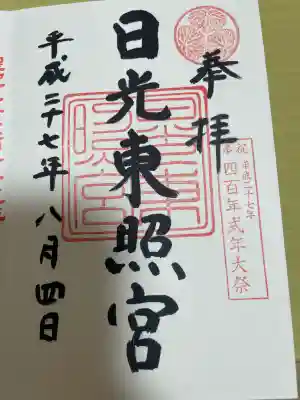 奉拝
祝 平成二十七年
奉 四百年式年大祭
日光東照宮
東照宮
平成二十七年八月四日